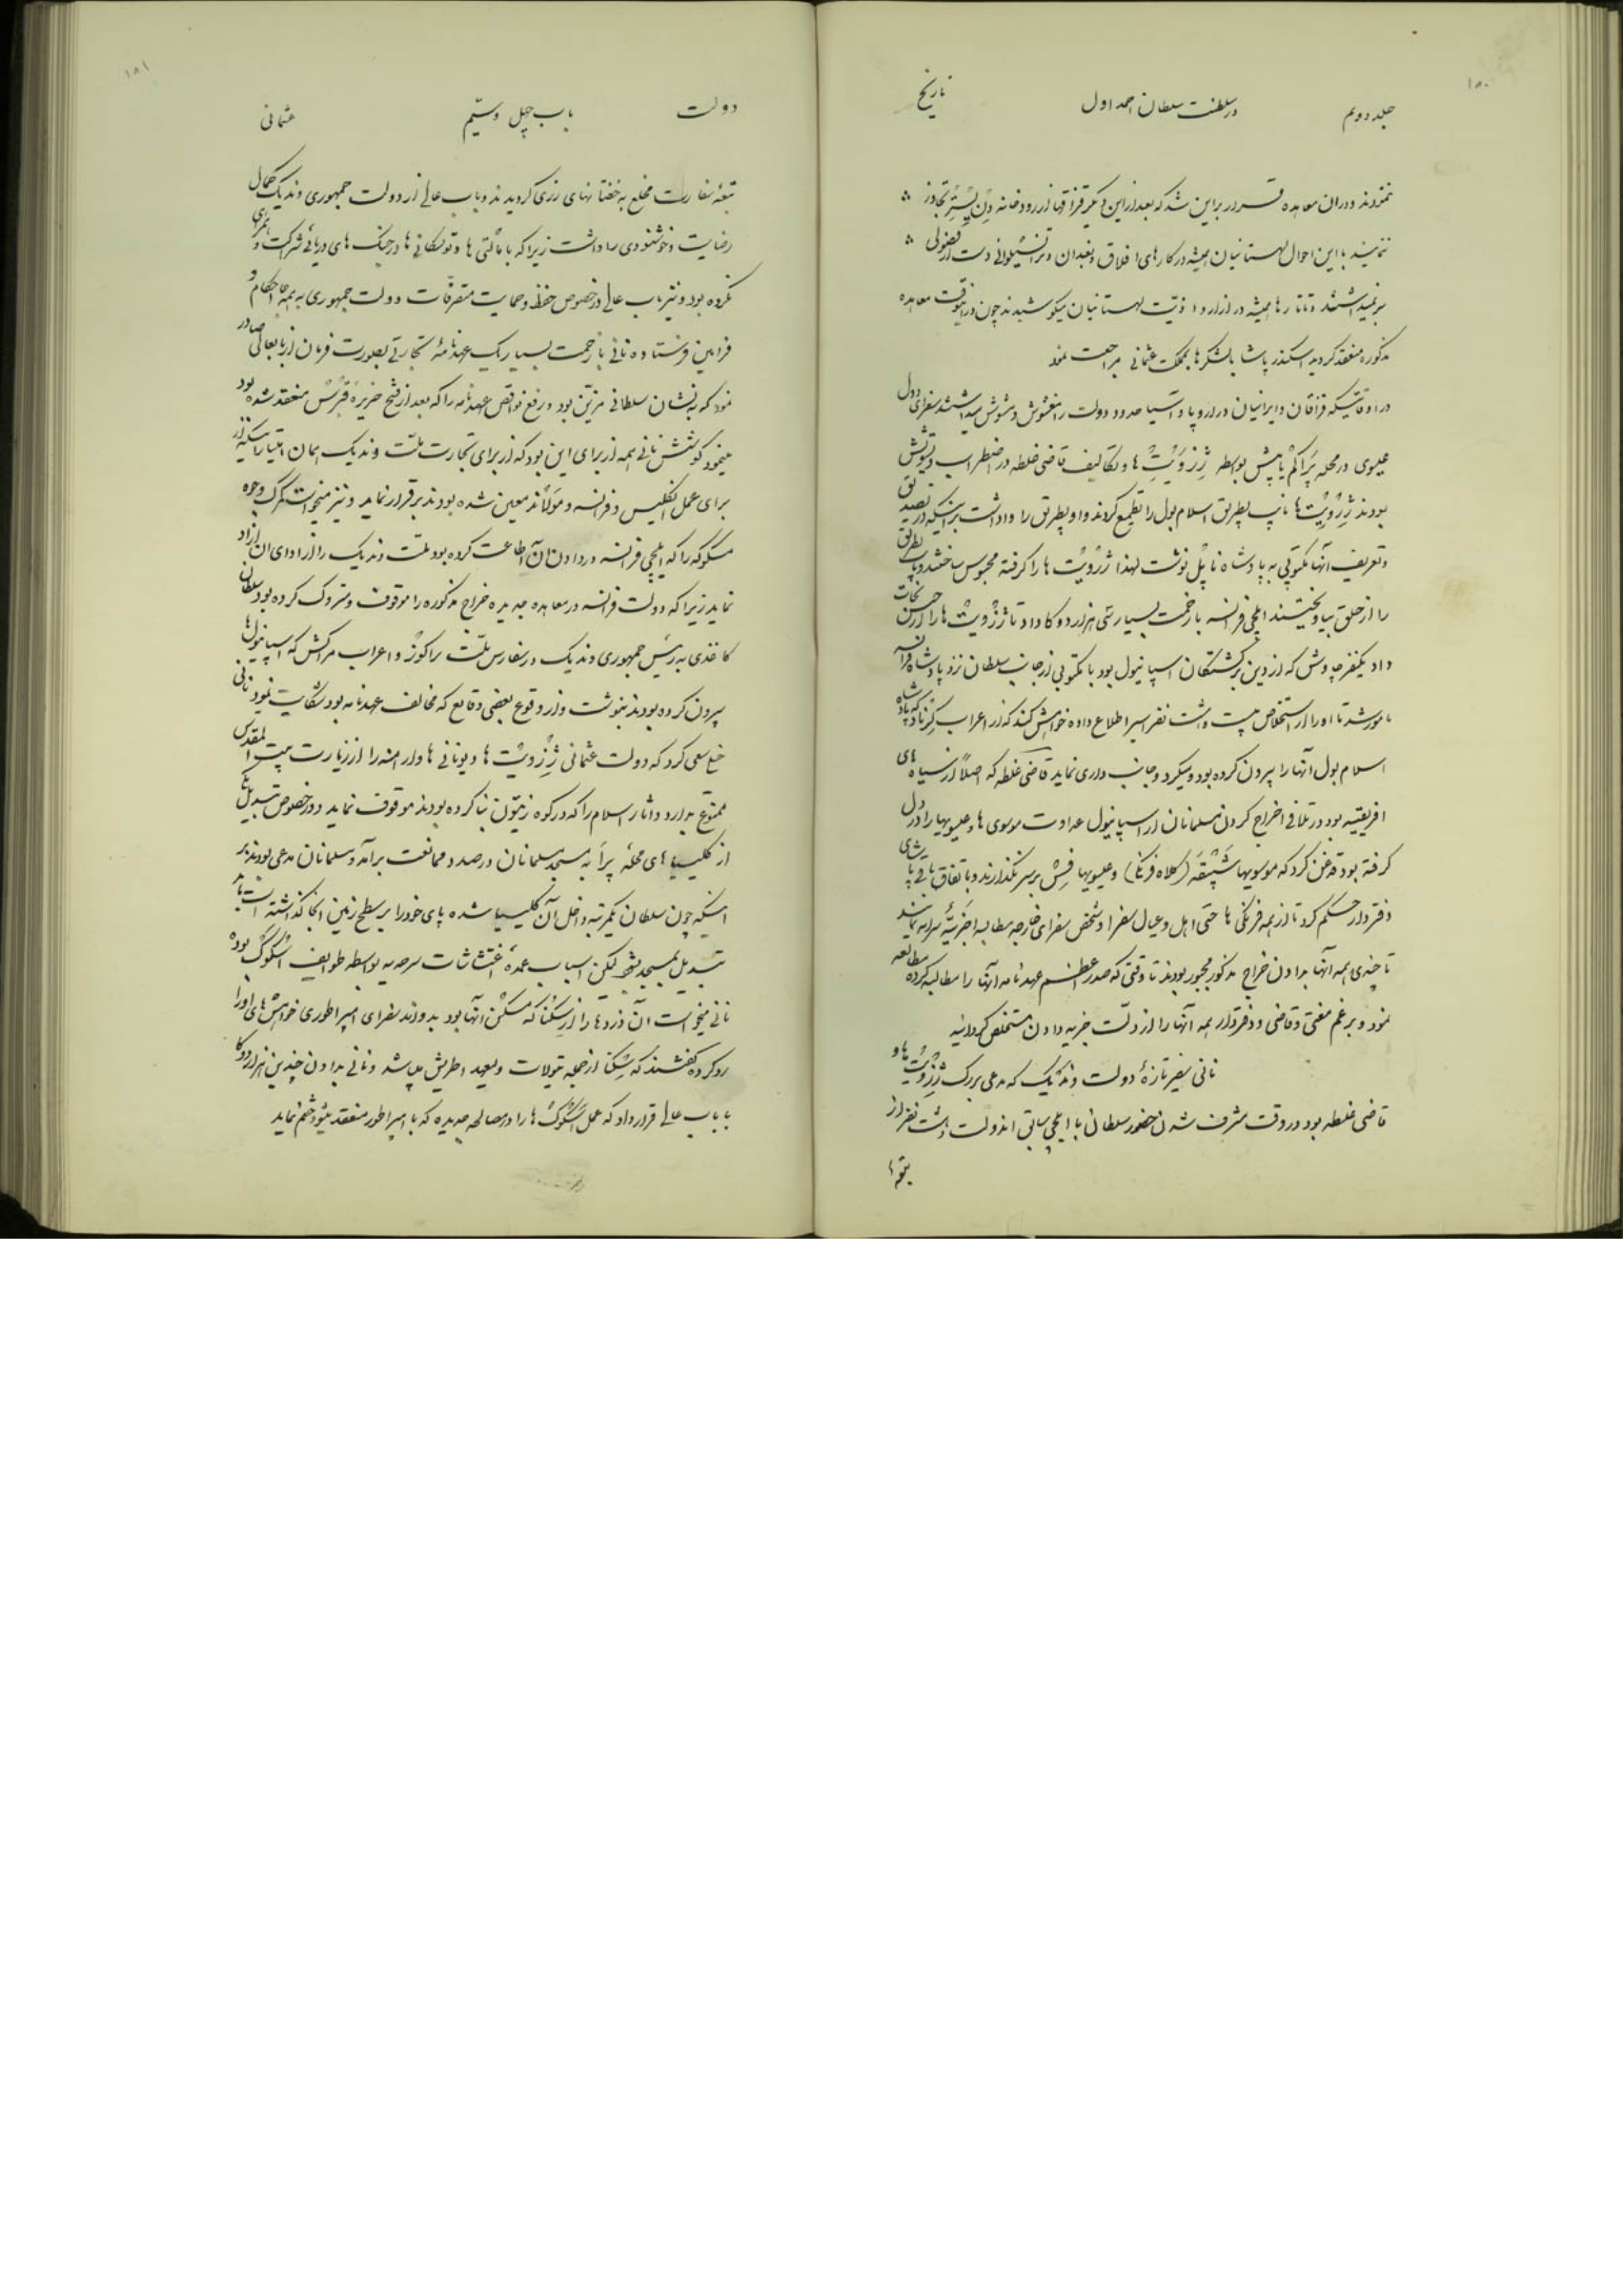 ۱۸۰
جلد دویم
در سلطنت سلطان احمد اول
تاریخ
نمودند و در آن معاهده قرار بر این شد که بعد از این دیگر قزاقها از رودخانه دنیستر تجاوز
ننمایند با این احوال لهستانیان همیشه در کارهای افلاق و بغدان و ترانسیلوانی دست از فضولی
بر نمیداشتند و تاتارها همیشه در آزار و اذیت لهستانیان میکوشیدند چون در اینوقت معاهده
مذکوره منعقد گردید اسکندر پاشا با لشکرها بمملکت عثمانی مراجعت نمود
در اوقاتیکه قزاقان و ایرانیان در اروپا و آسیا حدود دولت را مغشوش و مشوش میداشتند سفرای دول
عیسوی در محله پراکم یا پیش بواسطه ژزویت ها و تکالیف قاضی غلطه در اضطراب و تشویش
بودند ژزویت ها نایب پطریق اسلامبول را تطمیع کردند و او پطریق را واداشت بر اینکه در تصدیق
و تعریف آنها مکتوبی به پادشاه ناپل نوشت لهذا ژزویت ها را گرفته محبوس ساختند و پطریق
را از حلق بیاویختند ایلچی فرانسه با زحمت بسیار سی هزار دوکا داد تا ژزویت ها را از حبس نجات
داد یکنفر چاوش که از دین برگشتگان اسپانیول بود با مکتوبی از جانب سلطان نزد پادشاه فرانسه
مامور شد تا او را از استخلاص بیست و هشت نفر اسیر اطلاع داده خواهش کند که از اعراب گرناد که پادشاه
اسلامبول آنها را بیرون کرده بود و میکرد و جانب داری نماید قاضی غلطه که اصلاً از سیاه های
افریقیه بود در تلافی اخراج کردن مسلمانان از اسپانیول عداوت موسوی ها و عیسویها را در دل
گرفته بود قدغن کرد که موسویها شپقه (کلاه فرنگی) و عیسویها فس بر سر نگذارند و باتفاق باقی پاشای
دفتردار حکم کرد تا از همه فرنگی ها حتی اهل و عیال سفرا و شخص سفرای خارجه مطالبه جزیه سرانه نمایند
تا چندی همه آنها بدادن خراج مذکور مجبور بودند تا وقتی که صدر اعظم عهدنامه آنها را مطالبه کرده مطالعه
نمود و بر غم مفتی و قاضی و دفتردار همه آنها را از ذلت جزیه دادن مستخلص گردانید
نانی سفیر تازهٔ دولت وندیک که مدعی بزرگ ژزویت ها و
قاضی غلطه بود در وقت مشرف شدن حضور سلطان با ایلچی سابق اندولت هشت نفر از
تبعهٔ
۱۸۱
دولت
باب چهل و سیّم
عثمانی
تبعهٔ سفارت مخلع به خفتانهای زری گردیدند و باب عالی از دولت جمهوری وندیک کمال
رضایت و خوشنودی را داشت زیرا که با مالتی ها و توسکانی ها در جنگ های دریائی شرکت و همراهی
نکرده بود و نیز باب عالی در خصوص حفظ و حمایت متصرفات دولت جمهوری به همه جا احکام و
فرامین فرستاده نانی با زحمت بسیار یک عهدنامهٔ تجارتی بصورت فرمان از بابعالی صادر
نمود که به نشان سلطانی مزین بود و رفع نواقص عهدنامه را که بعد از فتح جزیره قبرس منعقد شده بود
مینمود کوشش نانی همه از برای این بود که از برای تجارت ملت وندیک همان امتیازات را که
برای عمل انگلیس و فرانسه و هولاند معین شده بودند برقرار نماید و نیز میخواست گمرک وجوه
مسکوکه را که ایلچی فرانسه در دادن آن اطاعت کرده بود ملت وندیک را از ادای آن آزاد
نماید زیرا که دولت فرانسه در معاهده جدیده خراج مذکوره را موقوف و متروک کرده بود سلطان
کاغذی به رئیس جمهوری وندیک در سفارس ملت راگوز و اعراب مراکش که اسپانیولها
بیرون کرده بودند بنوشت و از وقوع بعضی وقایع که مخالف عهدنامه بود شکایت نمود نانی
خیلی سعی کرد که دولت عثمانی ژزویت ها و یونانی ها و ارامنه را از زیارت بیت المقدس
ممنوع بدارد و آثار اسلام را که در کوه زیتون بنا کرده بودند موقوف نماید و در خصوص تبدیل یکی
از کلیساهای محلهٔ پرا به مسجد مسلمانان در صدد ممانعت برآمد و مسلمانان مدعی بودند بر
اینکه چون سلطان یکمرتبه داخل آن کلیسیا شده پای خود را بر سطح زمین آنجا گذاشته است باید
تبدیل بمسجد شود لکن اسباب عمدهٔ اغتشاشات سرحدیه بواسطه طوایف اسکوک بوده
نانی میخواست آن دزدها را از سِکنا که مسکن آنها بود بدواند سفرای امپراطوری خواهش های او را
رد کرده گفتند که سِکنا از جمله تیولات ولیعهد اطریش میباشد و نانی بدادن چندین هزار دوکا
بباب عالی قرار داد که عمل اسکوک ها را در مصالحه جدیده که با امپراطور منعقد میشود ختم نماید